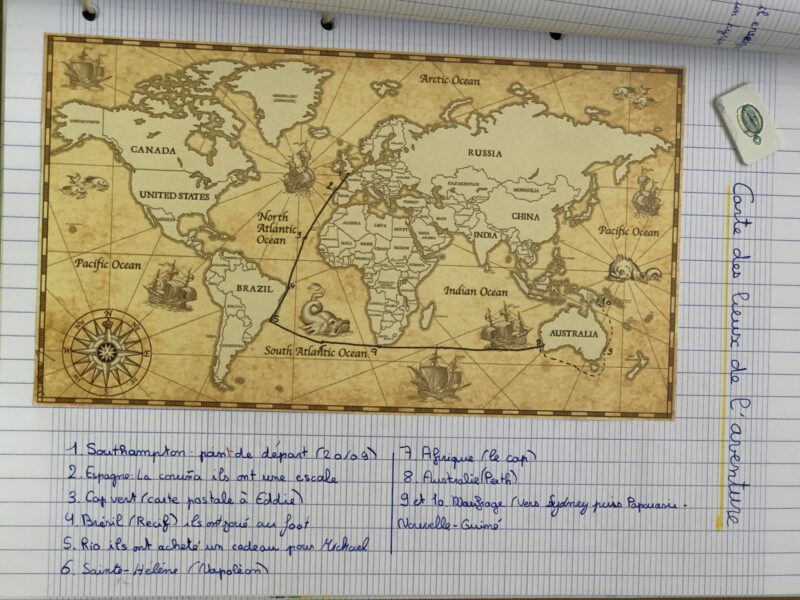 Arctic Ocean
GREENLAND
(DENMARK)
UNITED STATES
CANADA
RUSSIA
UNITED STATES
KAZAKHSTAN
MONGOLIA
TURKEY
CHINA
North
Atlantic
Ocean
MEXICO
ALGERIA
LIBYA
EGYPT
IRAN
INDIA
Pacific Ocean
MALI
NIGER
CHAD
SUDAN
Pacific Ocean
BRAZIL
Indian Ocean
AUSTRALIA
South Atlantic Ocean
2
3
4
5
7
8
9
10
Carte des lieux de l'aventure
1. Southampton : point de départ (20/09)
2. Espagne : La coruña ils ont une escale
3. Cap vert (carte postale à Eddie)
4. Brésil (Recif) ils ont joué au foot
5. Rio ils ont acheté un cadeau pour Michael
6. Sainte-Hélène (Napoléon)
7 Afrique (le cap)
8. Australie (Perth)
9 et 10. Naufrage (vers Sydney puis Papouasie -
Nouvelle-Guiné